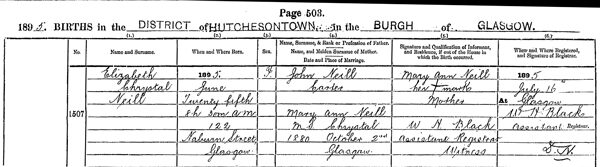 Page 503.
1895. BIRTHS in the DISTRICT of HUTCHESONTOWN, in the BURGH of GLASGOW.
(1.) (2.) (3.) (4.) (5.) (6.)
No. Name and Surname. When and Where Born. Sex. Name, Surname, & Rank or Profession of Father. Name, and Maiden Surname of Mother. Date and Place of Marriage. Signature and Qualification of Informant, and Residence, if out of the House in which the Birth occurred. When and Where Registered, and Signature of Registrar.
1507
Elizabeth
Chrystal
Neill
1895.
June
Twenty fifth
8h 50m A M
122
Naburn Street
Glasgow
F
John Neill
Carter
Mary Ann Neill
M.S. Chrystal
1880 October 2nd
Glasgow
Mary Ann Neill
her + mark
Mother
W H Black
Assistant Registrar
Witness
1895
July 16
At Glasgow
W H Black
Assistant Registrar.